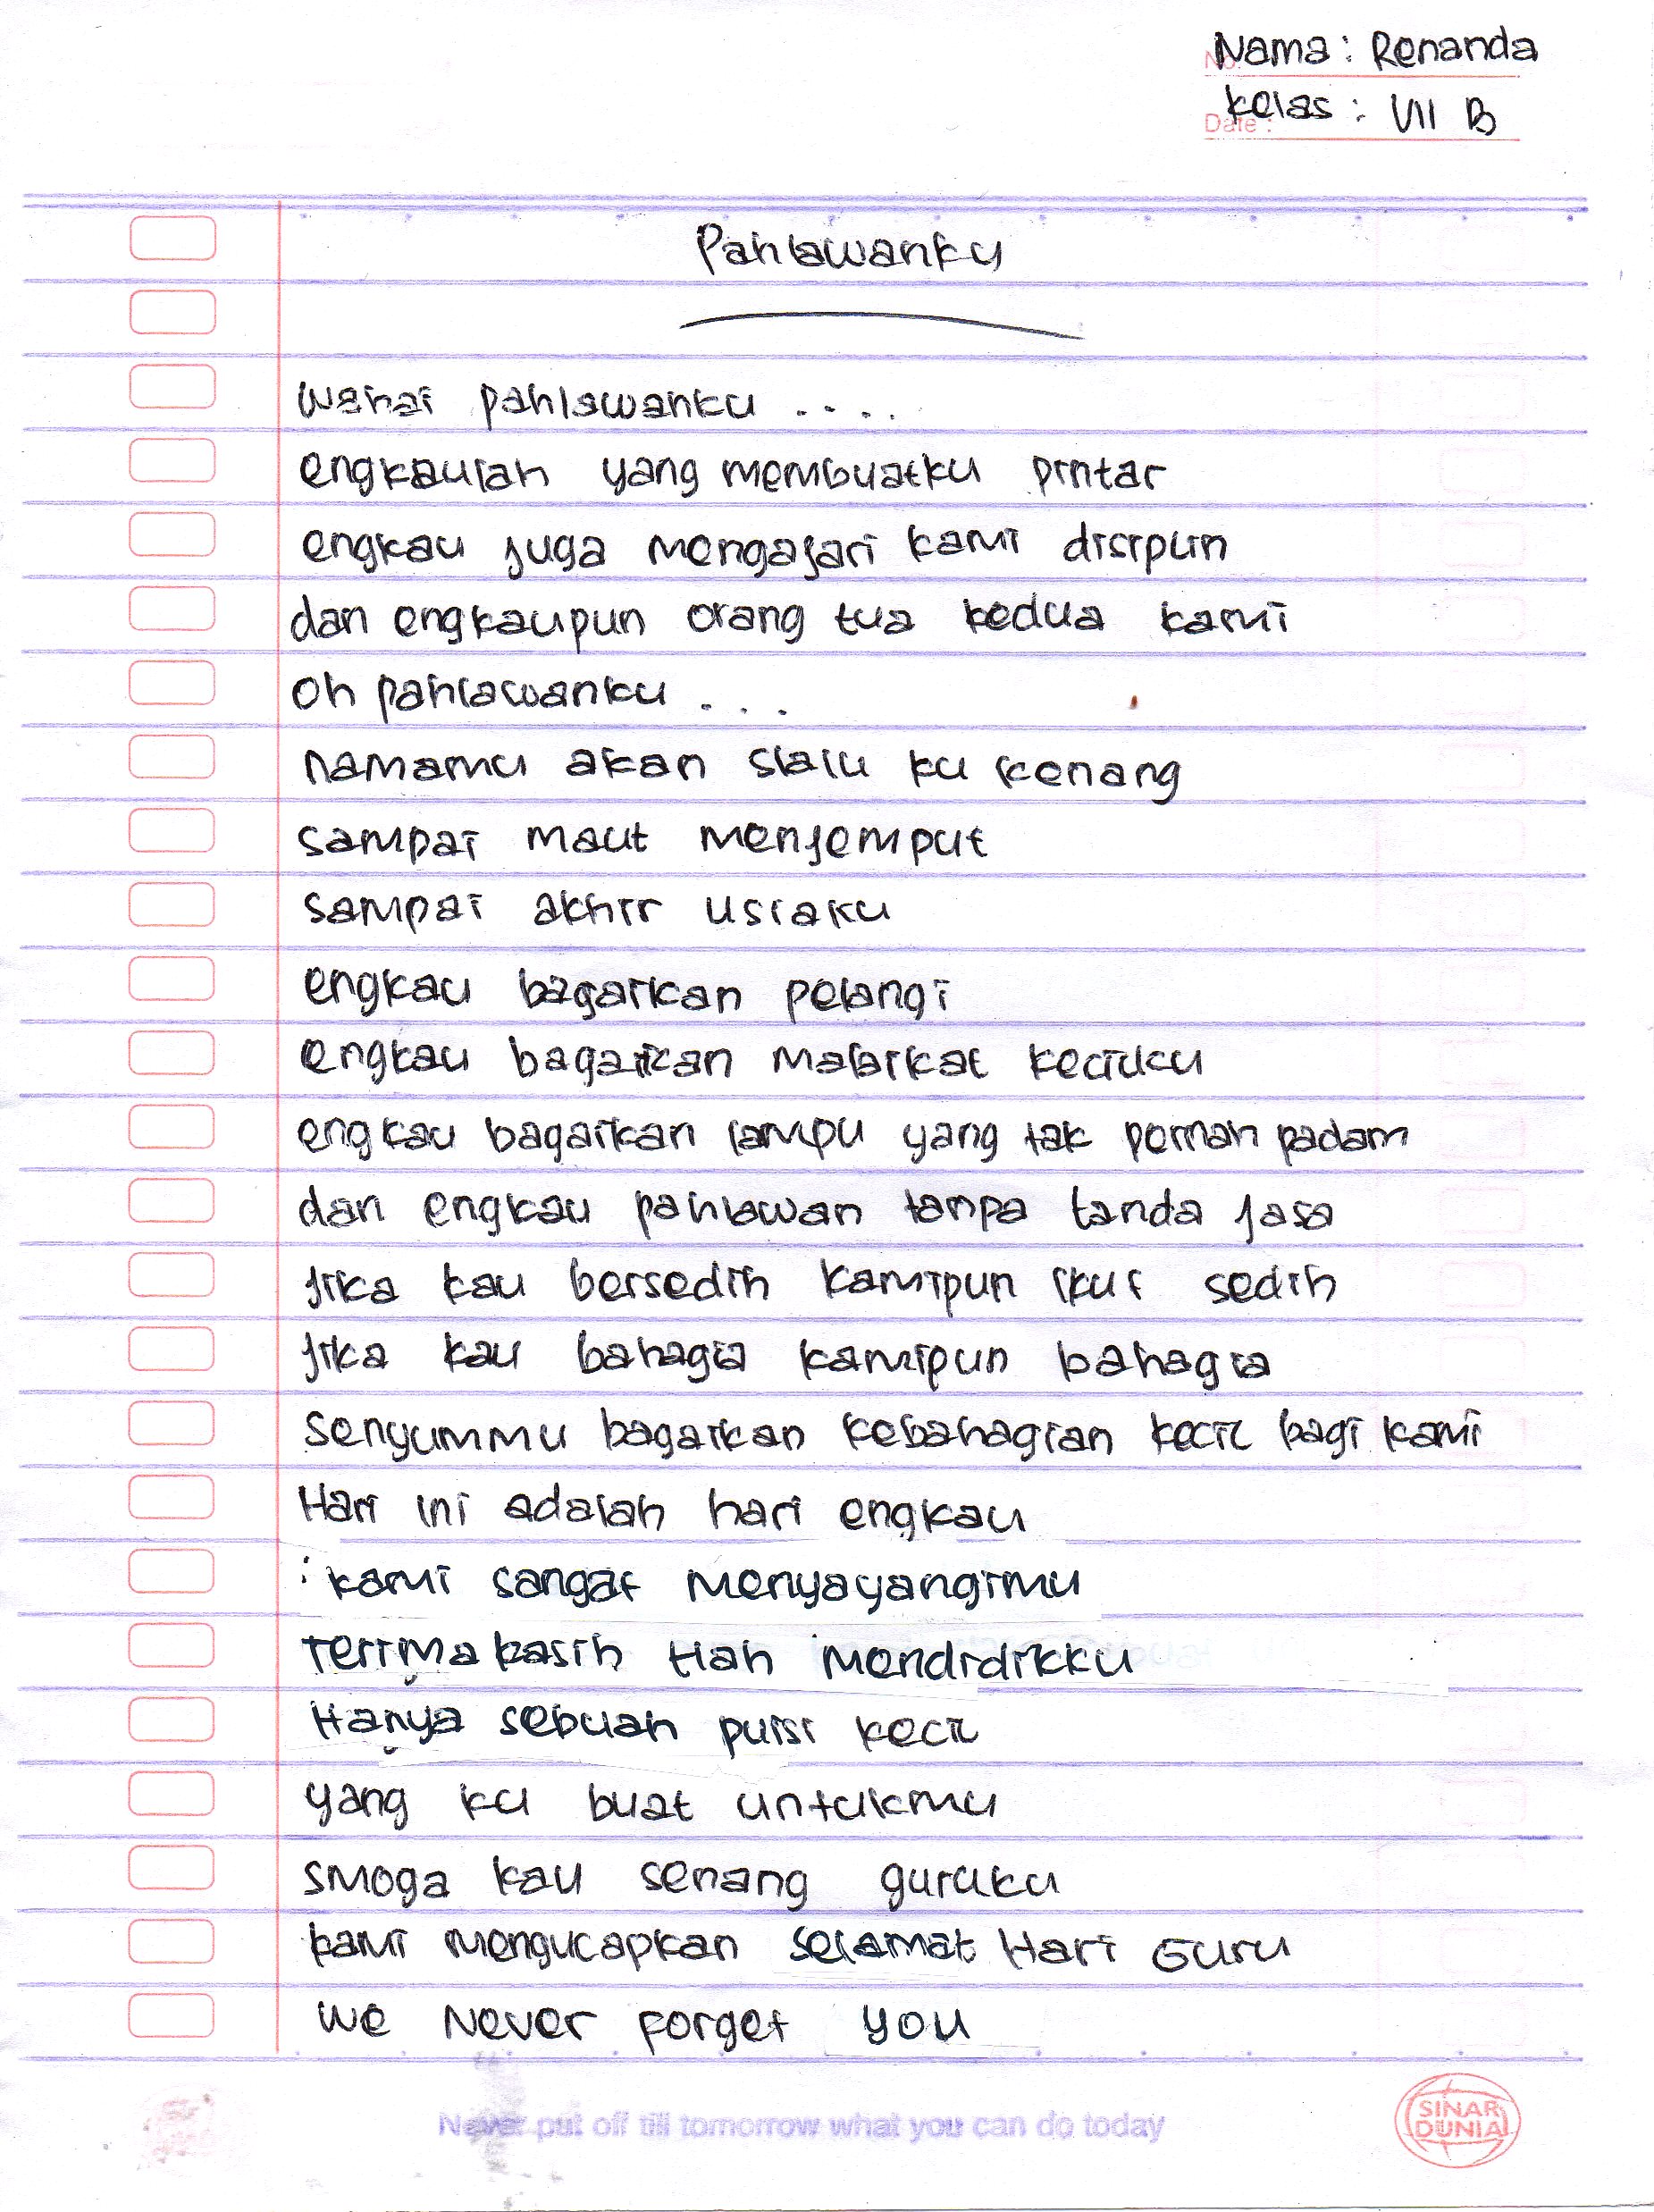 Nama : Renanda
No :
Kelas : VII B
Date :
Pahlawanku
wahai pahlawanku ....
engkaulah yang membuatku pintar
engkau juga mengajari kami disiplin
dan engkaupun orang tua kedua kami
oh pahlawanku ...
namamu akan slalu ku kenang
sampai maut menjemput
sampai akhir usiaku
engkau bagaikan pelangi
engkau bagaikan malaikat kecilku
engkau bagaikan lampu yang tak pernah padam
dan engkau pahlawan tanpa tanda jasa
jika kau bersedih kamipun ikut sedih
jika kau bahagia kamipun bahagia
senyummu bagaikan kebahagian kecil bagi kami
Hari ini adalah hari engkau
kami sangat menyayangimu
terima kasih tlah mendidikku
Hanya sebuah puisi kecil
yang ku buat untukmu
smoga kau senang guruku
kami mengucapkan selamat Hari Guru
we Never forget you
Never put off till tomorrow what you can do today
SINAR DUNIA